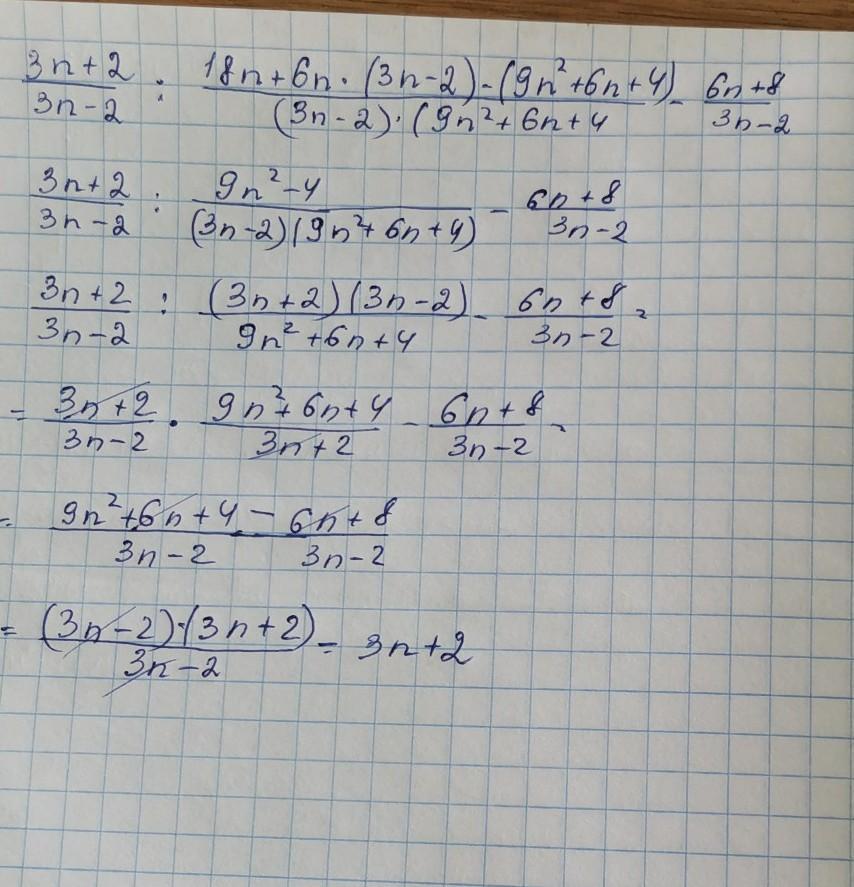 (3n+2)/(3n-2) : (18n+6n·(3n-2)-(9n²+6n+4))/((3n-2)·(9n²+6n+4) - (6n+8)/(3n-2)
(3n+2)/(3n-2) : (9n²-4)/((3n-2)(9n²+6n+4)) - (6n+8)/(3n-2)
(3n+2)/(3n-2) : ((3n+2)(3n-2))/(9n²+6n+4) - (6n+8)/(3n-2) =
= (3n+2)/(3n-2) · (9n²+6n+4)/(3n+2) - (6n+8)/(3n-2) =
= (9n²+6n+4 - 6n+8)/(3n-2 3n-2)
= ((3n-2)·(3n+2))/(3n-2) = 3n+2